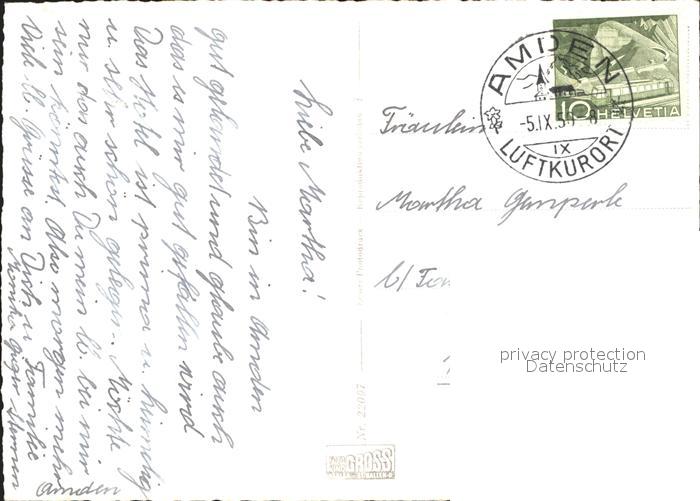 Liebe Martha!
Bin in Amden
gut gelandet und glaube auch
das es mir gut gefallen wird
Das Hotel ist prima u. heimelig
u. sehr schön gelegen. Möchte
nur das auch Du mein lb. bei mir
sein könntest. Also morgen mehr
Viele lb. Grüsse an Dich u Familie
Amden
Fräulein
Martha Gemperle
b/
AMDEN
-5.IX.5
IX
LUFTKURORT
10 HELVETIA
Nr. 22097
GROSS
privacy protection
Datenschutz